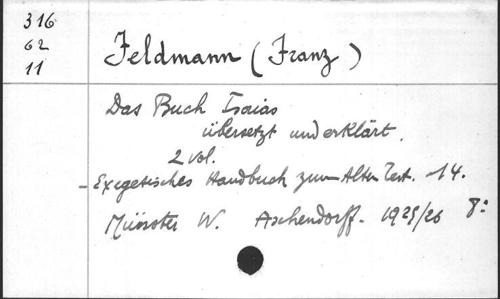 316
62
11
Feldmann (Franz)
Das Buch Isaias
übersetzt und erklärt.
2 vol.
- Exegetisches Handbuch zum Alten Test. - 14.
Münster W. Aschendorff. 1925/26 8°